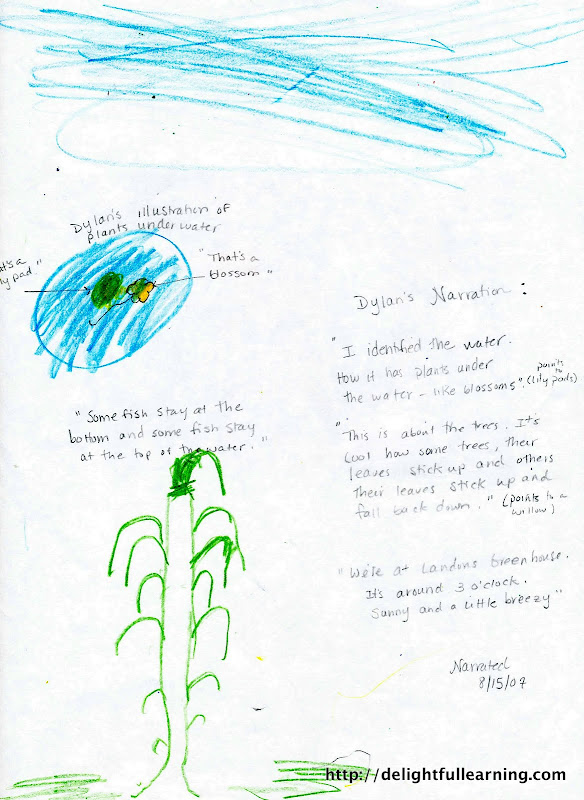 Dylan's illustration of
plants under water
"That's a
blossom"
pad."
Dylan's Narration :
"I identified the water.
How it has plants under
the water - like blossoms". (points to lily pads)
"This is about the trees. It's
cool how some trees, their
leaves stick up and others
their leaves stick up and
fall back down." (points to a willow)
"Some fish stay at the
bottom and some fish stay
at the top of the water."
"We're at Landons Greenhouse.
It's around 3 o'clock.
Sunny and a little breezy"
Narrated
8/15/07
http://delightfullearning.com